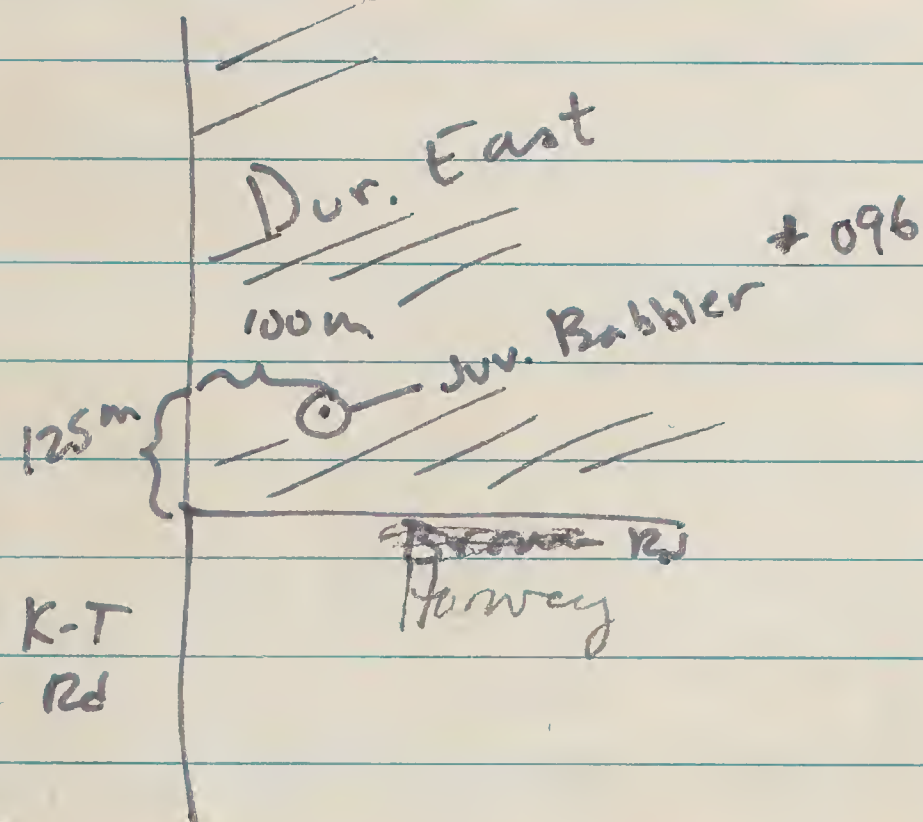 Dur. East
+ 096
100m
Juv. Babbler
125m
Rd
K-T
Rd